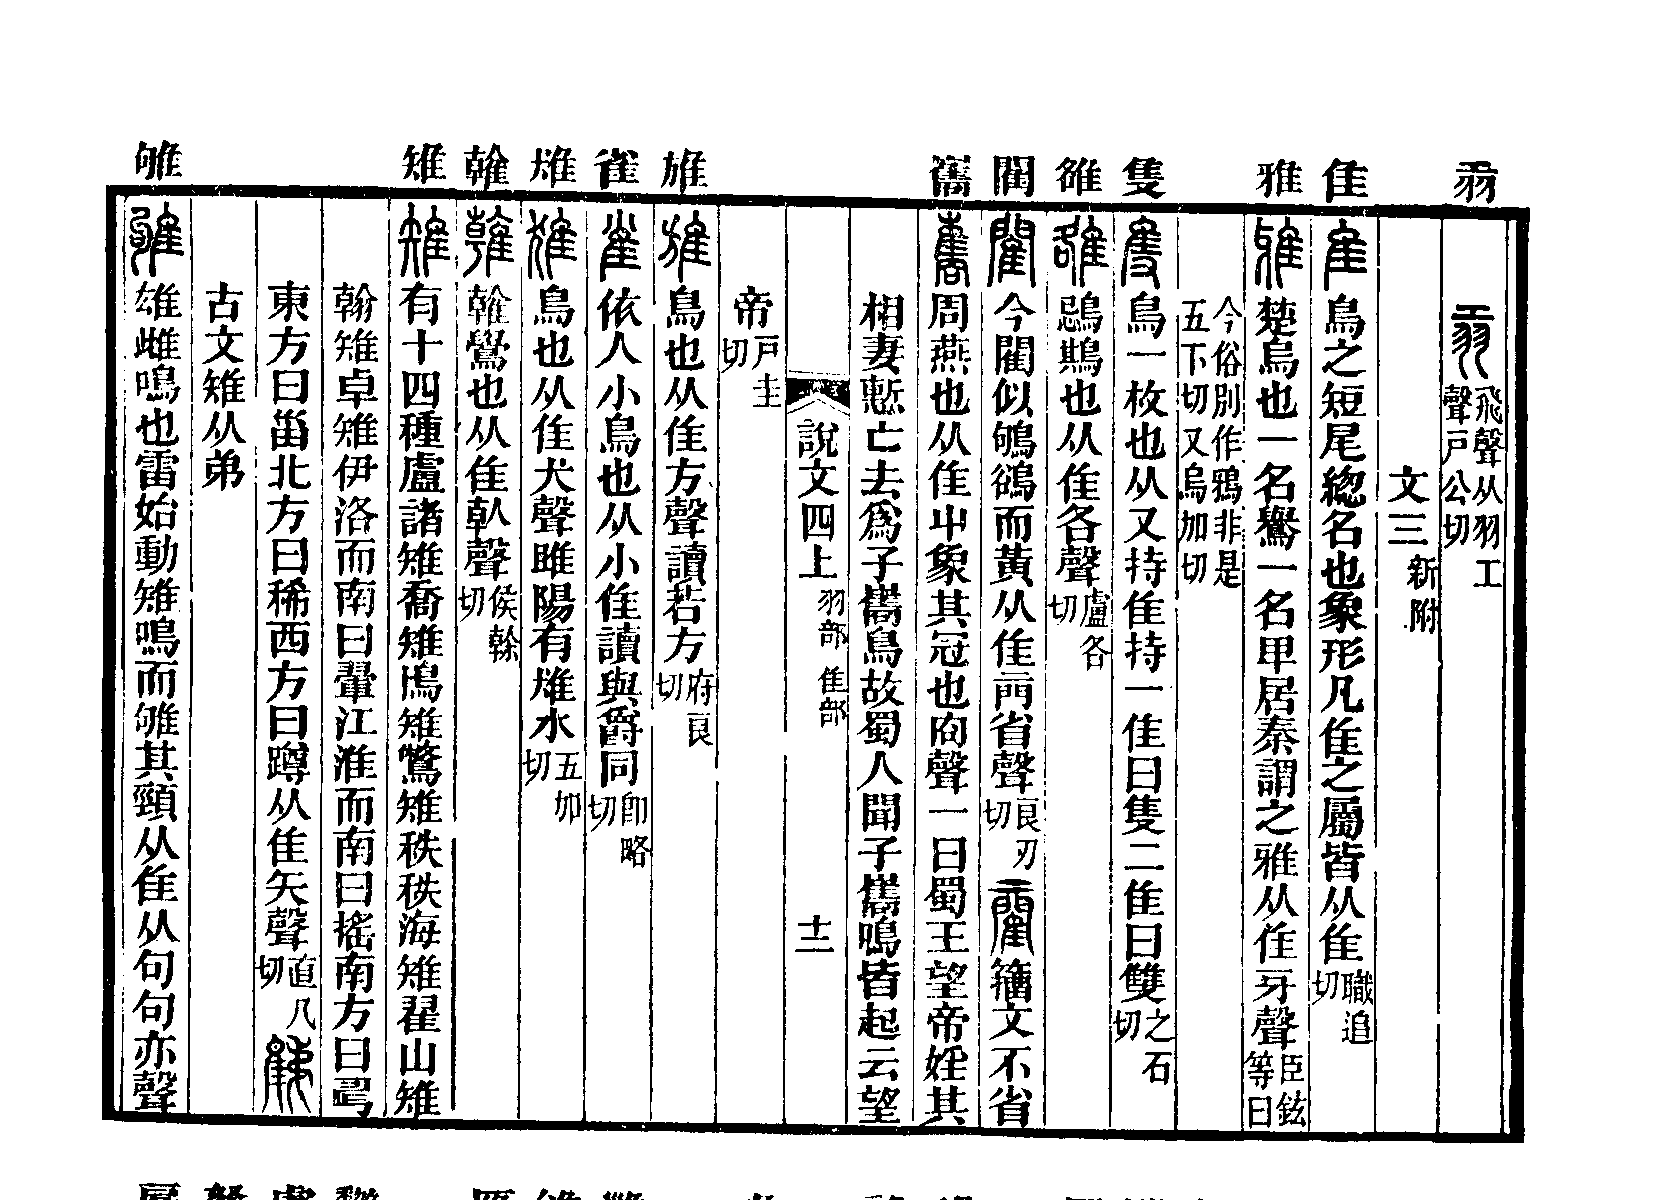 翃 隹 雅 隻 雒 閵 巂 雄 雀 䧹 雗 雉 雊
飛聲从羽工聲戶公切
文三 新附
隹 鳥之短尾緫名也象形凡隹之屬皆从隹 職追切
雅 楚烏也一名鸒一名𤰞居秦謂之雅从隹牙聲 臣鉉等曰
今俗別作鴉非是五下切又烏加切
隻 鳥一枚也从又持隹持一隹曰隻二隹曰雙 之石切
雒 鵋䳢也从隹各聲 盧各切
閵 今閵似雊鵒而黃从隹㒳省聲 良刃切 籒文不省
巂 周燕也从隹屮象其冠也㕯聲一曰蜀王望帝婬其
相妻慙亡去爲子巂鳥故蜀人聞子巂鳴皆起云望
說文四上 羽部 隹部 十二
帝 戶圭切
鳥也从隹方聲讀若方 府良切
雀 依人小鳥也从小隹讀與爵同 即略切
鳥也从隹犬聲睢陽有㹥水 五加切
雗 雗鷽也从隹倝聲 侯榦切
雉 有十四種盧諸雉喬雉鳪雉鷩雉秩秩海雉翟山雉
翰雉卓雉伊洛而南曰翬江淮而南曰搖南方曰𢏚
東方曰甾北方曰稀西方曰蹲从隹矢聲 直几切
古文雉从弟
雊 雄雌鳴也雷始動雉鳴而雊其頸从隹从句句亦聲